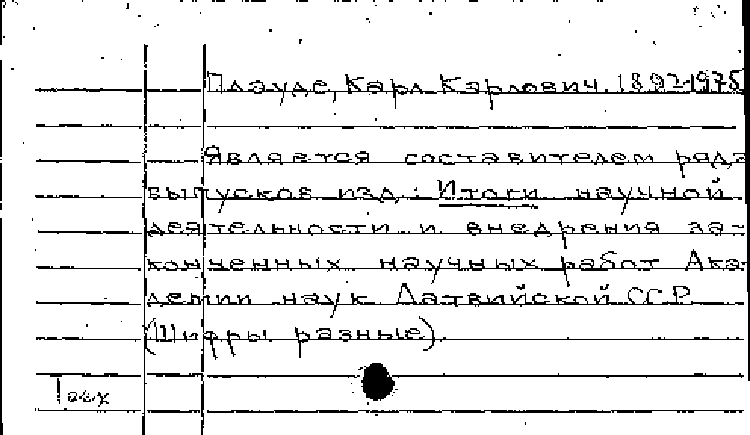 Плауде, Карл Карлович. 1892-1975
Является составителем ряда
выпусков изд.: Итоги научной
деятельности и внедрения за-
конченных научных работ Ака-
демии наук Латвийской ССР.
(Шифры разные).